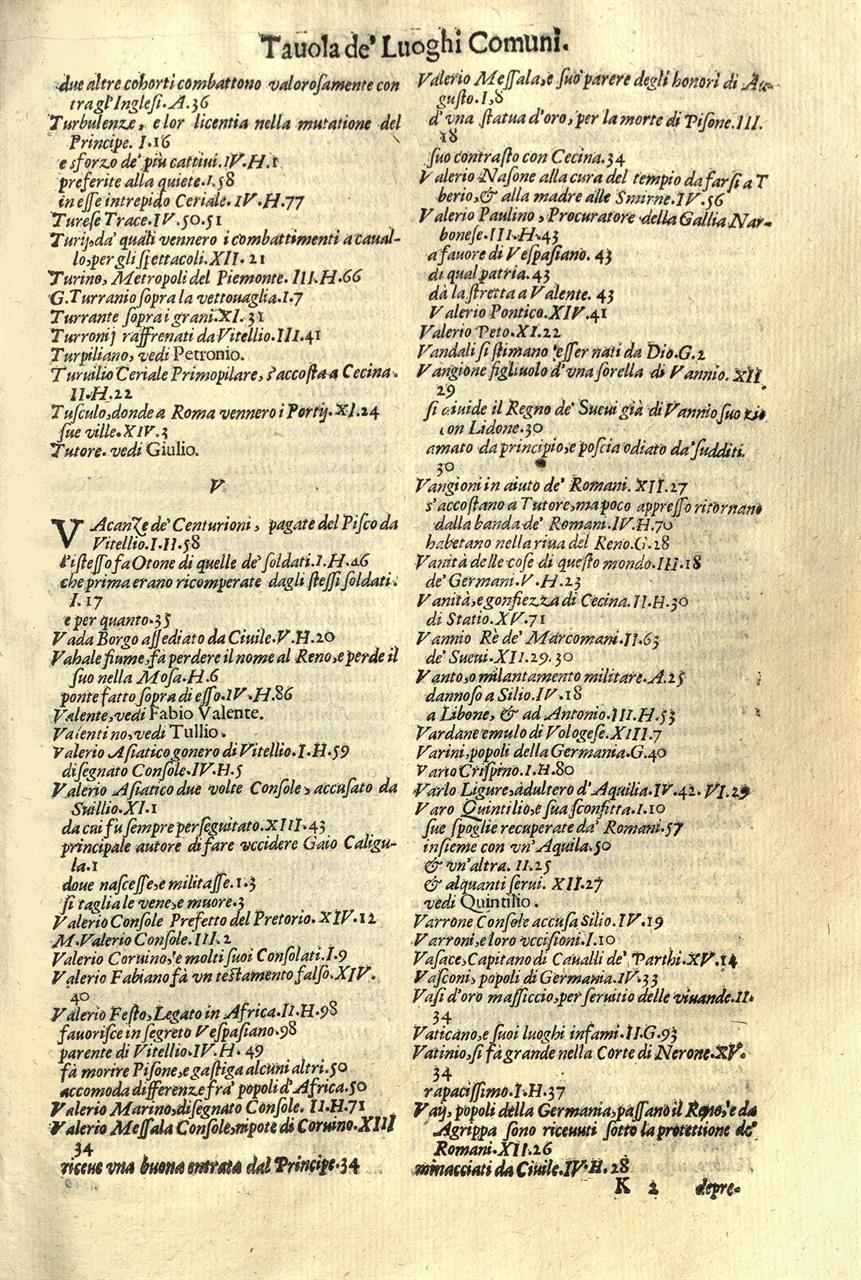 Tauola de' Luoghi Comuni.
due altre cohorti combattono valorosamente con
tra gl'Inglesi. A.36
Turbulenze, e lor licentia nella mutatione del
Principe. I.16
e sforzo de' più cattiui. IV.H.1
preferite alla quiete. I.58
in esse intrepido Ceriale. IV.H.77
Turese Trace. IV.50.51
Turij, da' quali vennero i combattimenti a caual-
lo, per gli spettacoli. XII. 21
Turino, Metropoli del Piemonte. III.H.66
G.Turranio sopra la vettouaglia. I.7
Turrante sopra i grani. XI. 31
Turronij raffrenati da Vitellio. III.41
Turpiliano, vedi Petronio.
Turuilio Ceriale Primopilare, s'accosta a Cecina.
II.H.22
Tusculo, donde a Roma vennero i Portij. XI.24
sue ville. XIV.3
Tutore. vedi Giulio.
V
VAcanZe de' Centurioni, pagate del Fisco da
Vitellio. I.II.58
l'istesso fa Otone di quelle de' soldati. I.H.46
che prima erano ricomperate dagli stessi soldati.
I.17
e per quanto. 35
Vada Borgo assediato da Ciuile. V.H.20
Vahale fiume, fa perdere il nome al Reno, e perde il
suo nella Mosa. H.6
ponte fatto sopra di esso. IV.H.86
Valente, vedi Fabio Valente.
Valentino, vedi Tullio.
Valerio Asiatico genero di Vitellio. I.H.59
disegnato Console. IV.H.5
Valerio Asiatico due volte Console, accusato da
Suillio. XI.1
da cui fu sempre perseguitato. XIII.43
principale autore di fare vccidere Gaio Caligu-
la. 1
doue nascesse, e militasse. 1.3
si taglia le vene, e muore. 3
Valerio Console Prefetto del Pretorio. XIV.12
M.Valerio Console. III.2
Valerio Coruino, e molti suoi Consolati. I.9
Valerio Fabiano fà vn testamento falso. XIV.
40
Valerio Festo, Legato in Africa. II.H.98
fauorisce in segreto Vespasiano. 98
parente di Vitellio. IV.H. 49
fà morire Pisone, e gastiga alcuni altri. 50
accomoda differenze fra' popoli d'Africa. 50
Valerio Marino, disegnato Console. II.H.71
Valerio Messala Console, nipote di Coruino. XIII
34
riceue vna buona entrata dal Principe. 34
Valerio Messala, e suo parere degli honori di Au-
gusto. I,8
d'vna statua d'oro, per la morte di Pisone. III.
18
suo contrasto con Cecina. 34
Valerio Nasone alla cura del tempio da farsi a T
berio, & alla madre alle Smirne. IV.56
Valerio Paulino, Procuratore della Gallia Nar-
bonese. III.H.43
a fauore di Vespasiano. 43
di qual patria. 43
dà la stretta a Valente. 43
Valerio Pontico. XIV.41
Valerio Peto. XI.22
Vandali si stimano esser nati da Dio. G.2
Vangione figliuolo d'vna sorella di Vannio. XII.
29
si diuide il Regno de' Sueui già di Vannio suo zio
con Lidone. 30
amato da principio, e poscia odiato da' sudditi.
30
Vangioni in aiuto de' Romani. XII.27
s'accostano a Tutore, ma poco appresso ritornano
dalla banda de' Romani. IV.H.70
habetano nella riua del Reno. G.28
Vanità delle cose di questo mondo. III.18
de' Germani. V.H.23
Vanità, e gonfiezza di Cecina. II.H.30
di Statio. XV.71
Vannio Rè de' Marcomani. II.63
de' Sueui. XII.29.30
Vanto, o milantamento militare. A.25
dannoso a Silio. IV.18
a Libone, & ad Antonio. III.H.53
Vardane emulo di Vologese. XIII.7
Varini, popoli della Germania. G.40
Vario Crispino. I.H.80
Varlo Ligure, adultero d'Aquilia. IV.42. VI.29
Varo Quintilio, e sua sconfitta. I.10
sue spoglie recuperate da' Romani. 57
insieme con vn'Aquila. 50
& vn'altra. II.25
& alquanti serui. XII.27
vedi Quintilio.
Varrone Console accusa Silio. IV.19
Varroni, e loro vccisioni. I.10
Vasace, Capitano di Caualli de' Parthi. XV.14
Vasconi, popoli di Germania. IV.33
Vasi d'oro massiccio, per seruitio delle viuande. II.
34
Vaticano, e suoi luoghi infami. II.G.93
Vatinio, si fà grande nella Corte di Nerone. XV.
34
rapacissimo. I.H.37
Vaij, popoli della Germania, passano il Reno, e da
Agrippa sono riceuuti sotto la protettione de'
Romani. XII.26
minacciati da Ciuile. IV.H.28
K 2 depre-